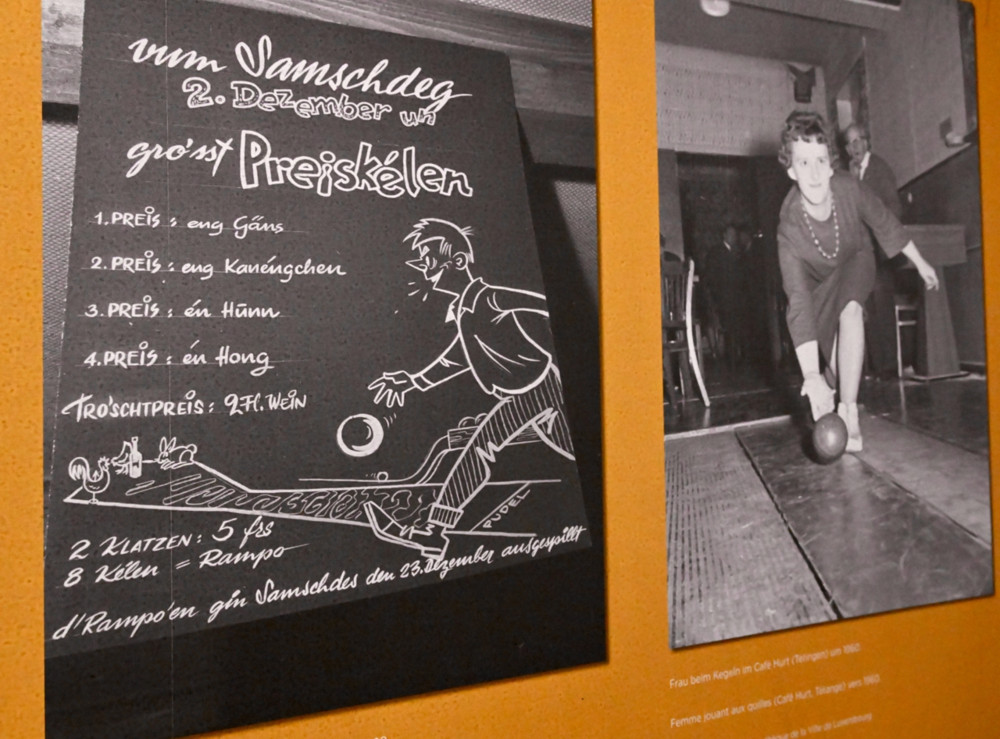 vum Samschdeg
2. Dezember un
gro'sst Preiskélen
1. PREIS : eng Gäns
2. PREIS : eng Kanéngchen
3. PREIS : én Hunn
4. PREIS : én Hong
TRO'SCHTPREIS: 2 Fl. WEIN
PUDEL
2 KLATZEN: 5 frs
8 Kélen = Rampo
d'Rampo'en gin Samschdes den 23. Dezember ausgespillt
Frau beim Kegeln im Café Hurt (Tétingen) um 1960.
Femme jouant aux quilles (Café Hurt, Tétange) vers 1960.
de la Ville de Luxembourg